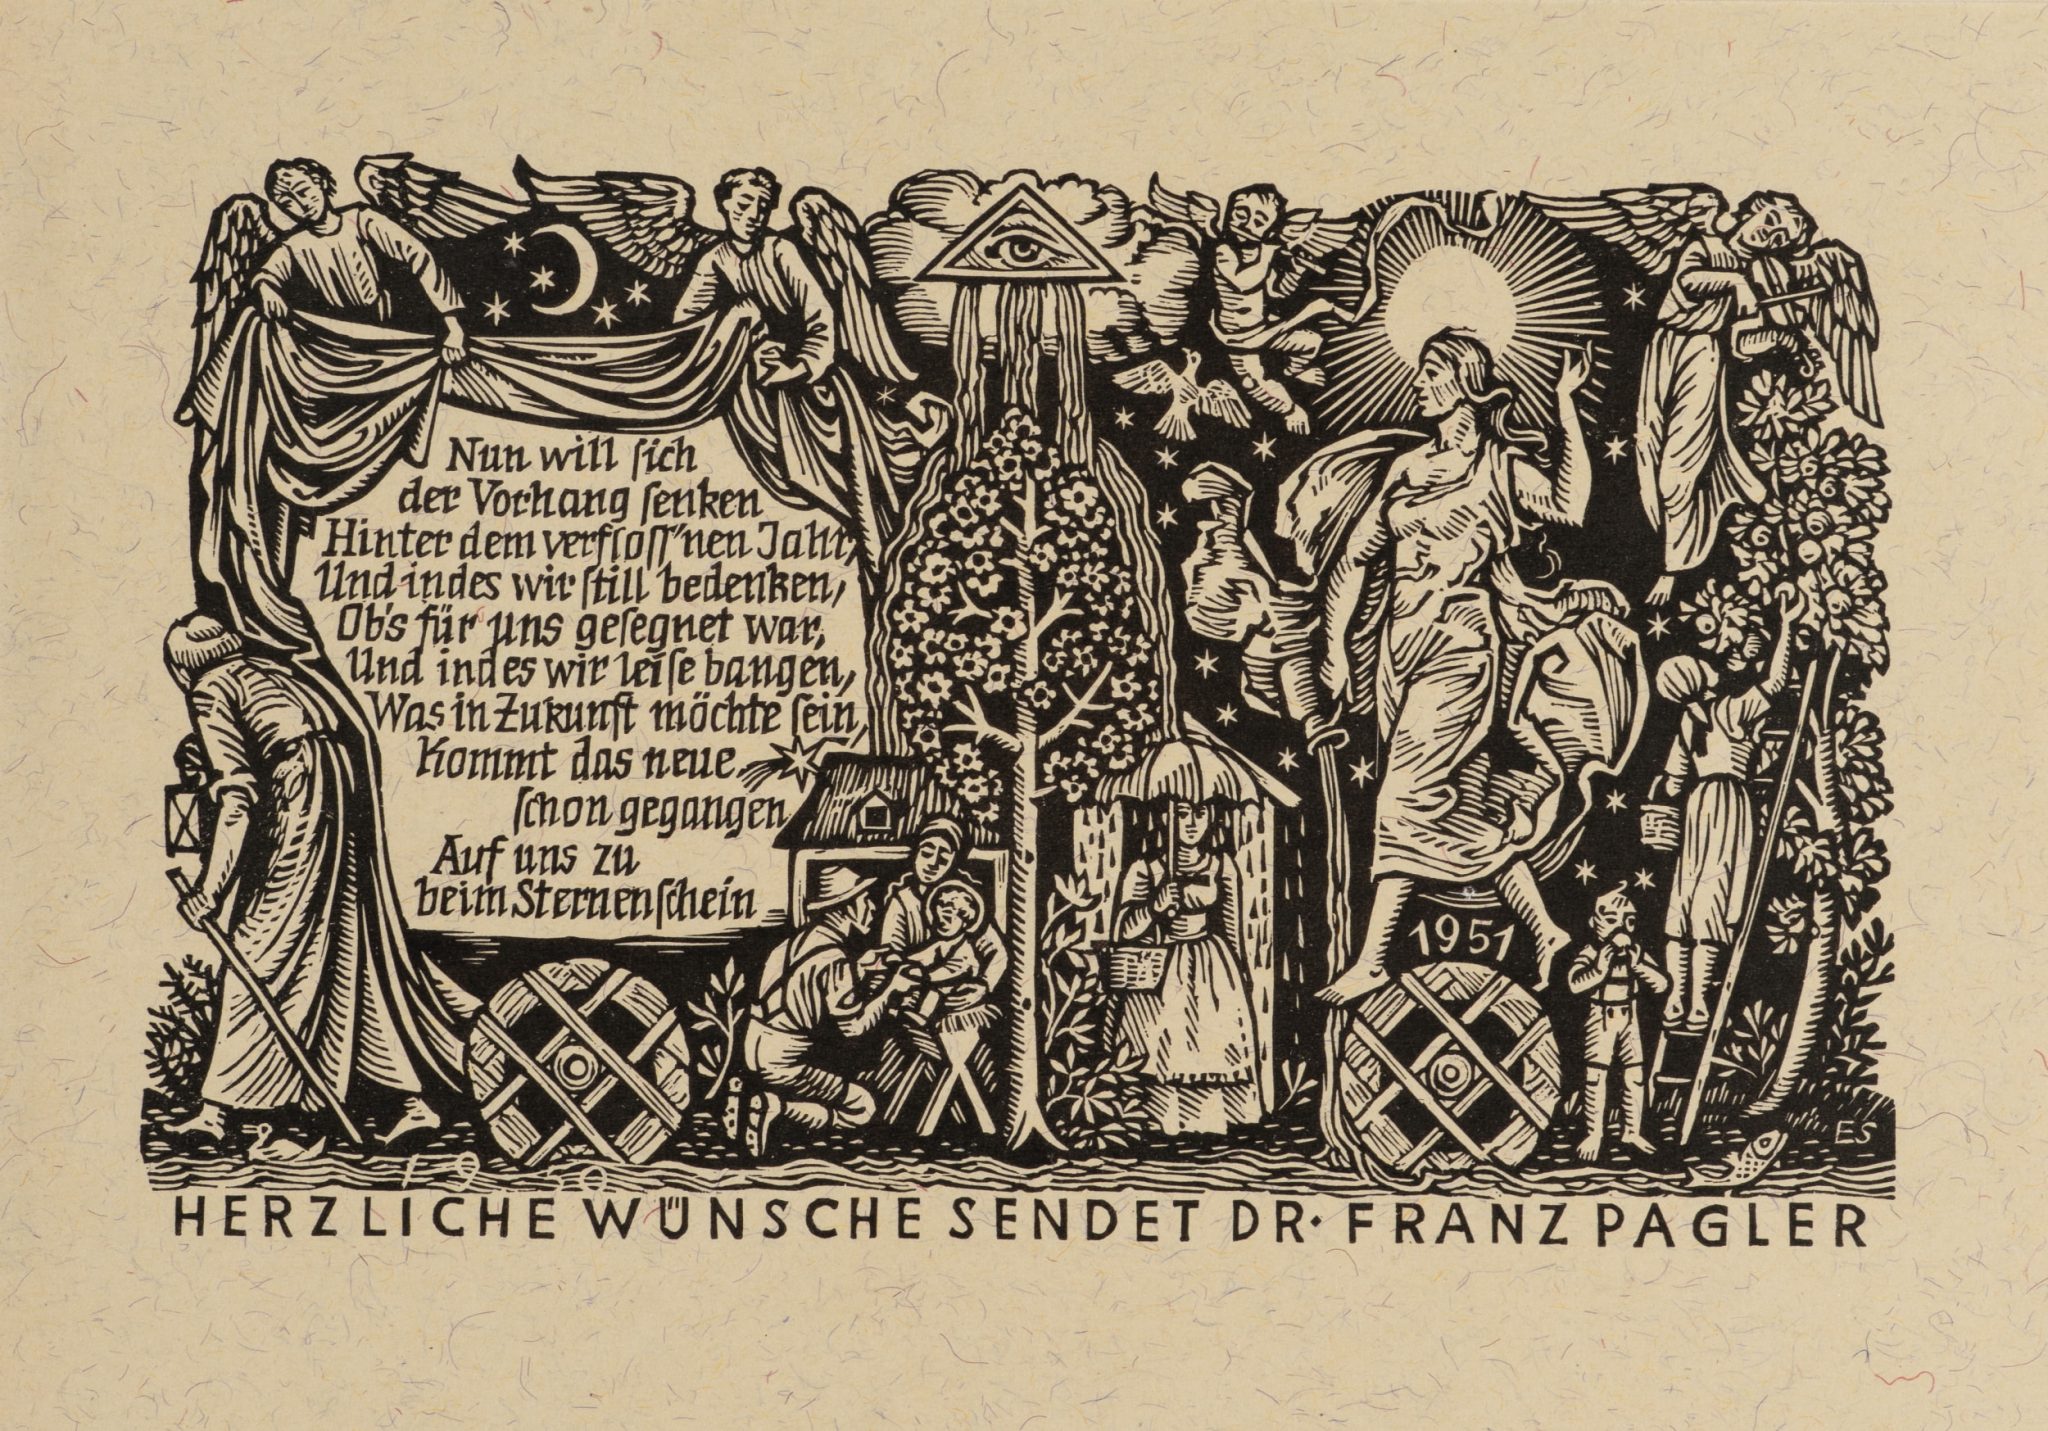 Nun will ſich
der Vorhang ſenken
Hinter dem verfloſſ'nen Jahr,
Und indes wir ſtill bedenken,
Ob's für uns geſegnet war,
Und indes wir leiſe bangen,
Was in Zukunft möchte ſein,
Kommt das neue
ſchon gegangen
Auf uns zu
beim Sternenſchein
1951
ES
1950
HERZLICHE WÜNSCHE SENDET DR· FRANZ PAGLER